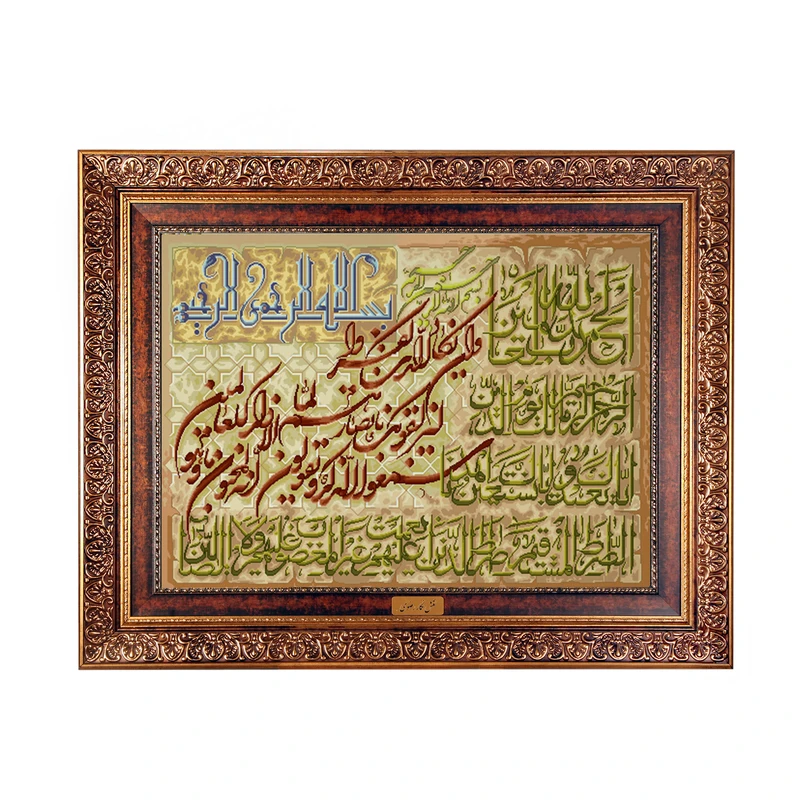 بسم الله الرحمن الرحیم
بسم الله الرحمن الرحیم
الحمد لله رب العالمین
الرحمن الرحیم مالک یوم الدین
ایاک نعبد و ایاک نستعین اهدنا
الصراط المستقیم صراط الذین انعمت علیهم غیر المغضوب علیهم ولا الضالین
وان یکاد الذین کفروا
لیزلقونک بابصارهم لما
سمعوا الذکر ویقولون انه لمجنون وما هو
الا ذکر للعالمین